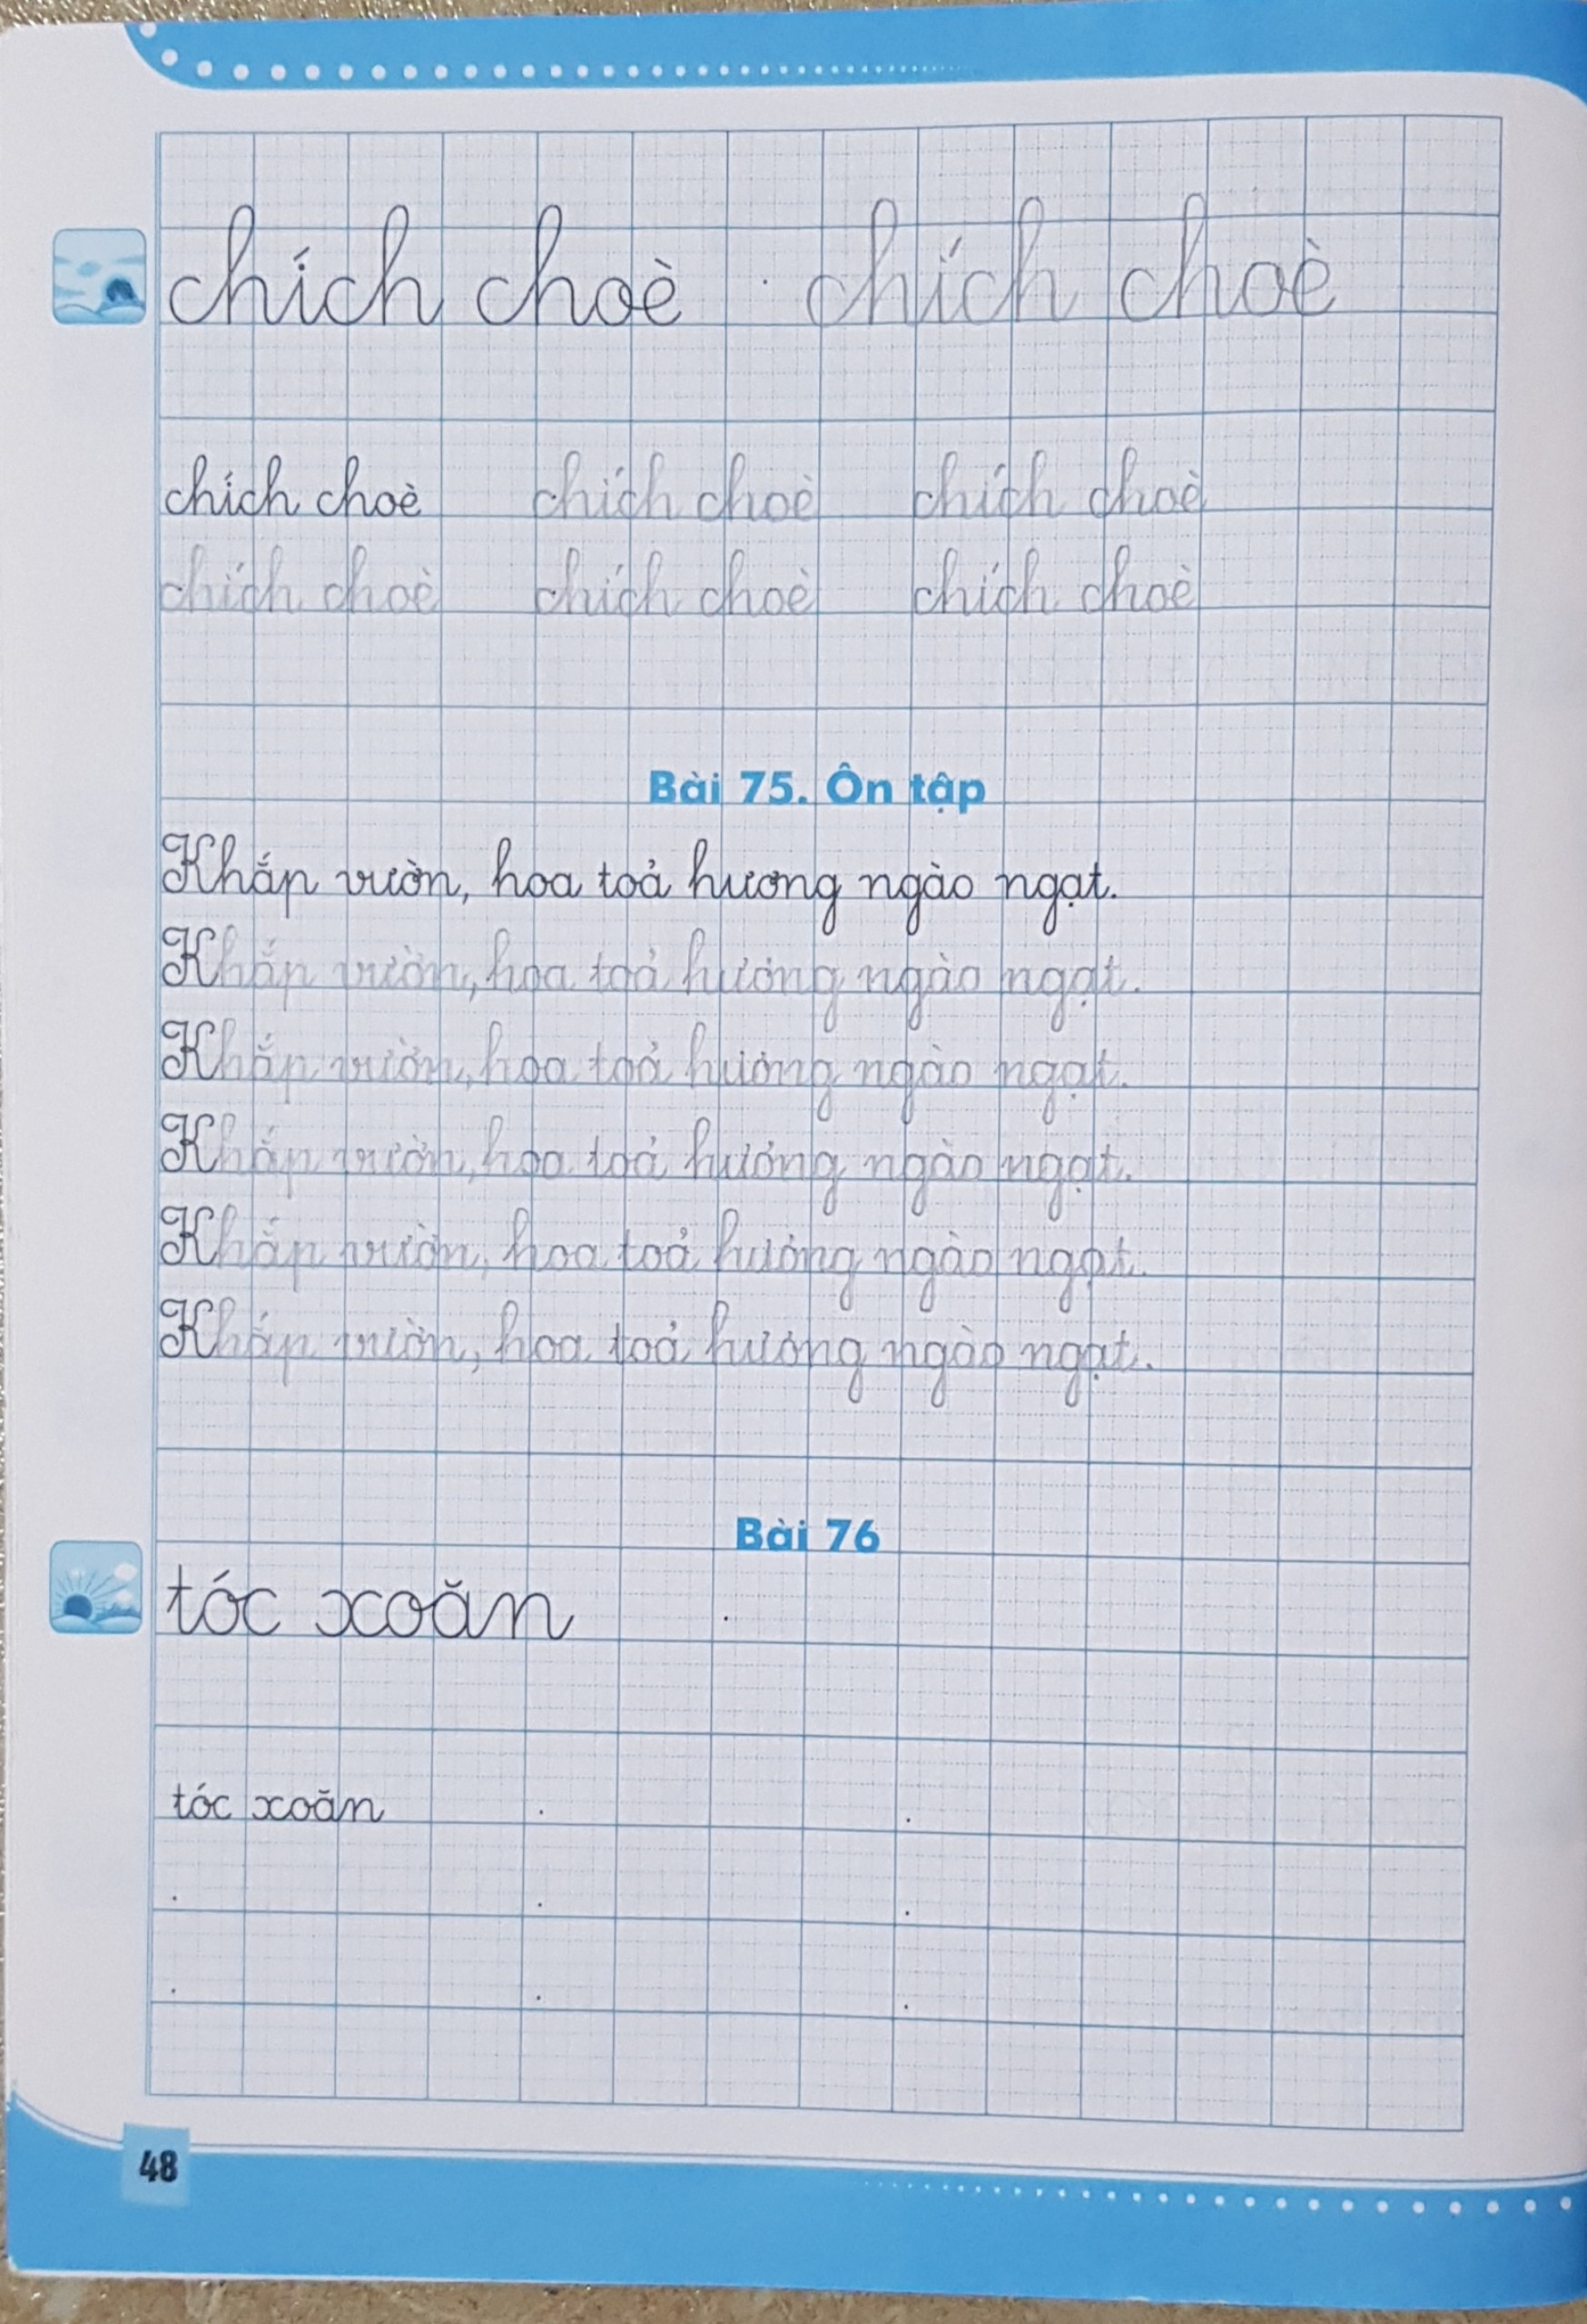 chích choè chích choè
chích choè chích choè chích choè
chích choè chích choè chích choè
Bài 75. Ôn tập
Khắp vườn, hoa toả hương ngào ngạt.
Khắp vườn, hoa toả hương ngào ngạt.
Khắp vườn, hoa toả hương ngào ngạt.
Khắp vườn, hoa toả hương ngào ngạt.
Khắp vườn, hoa toả hương ngào ngạt.
Khắp vườn, hoa toả hương ngào ngạt.
Bài 76
tóc xoăn
tóc xoăn
48